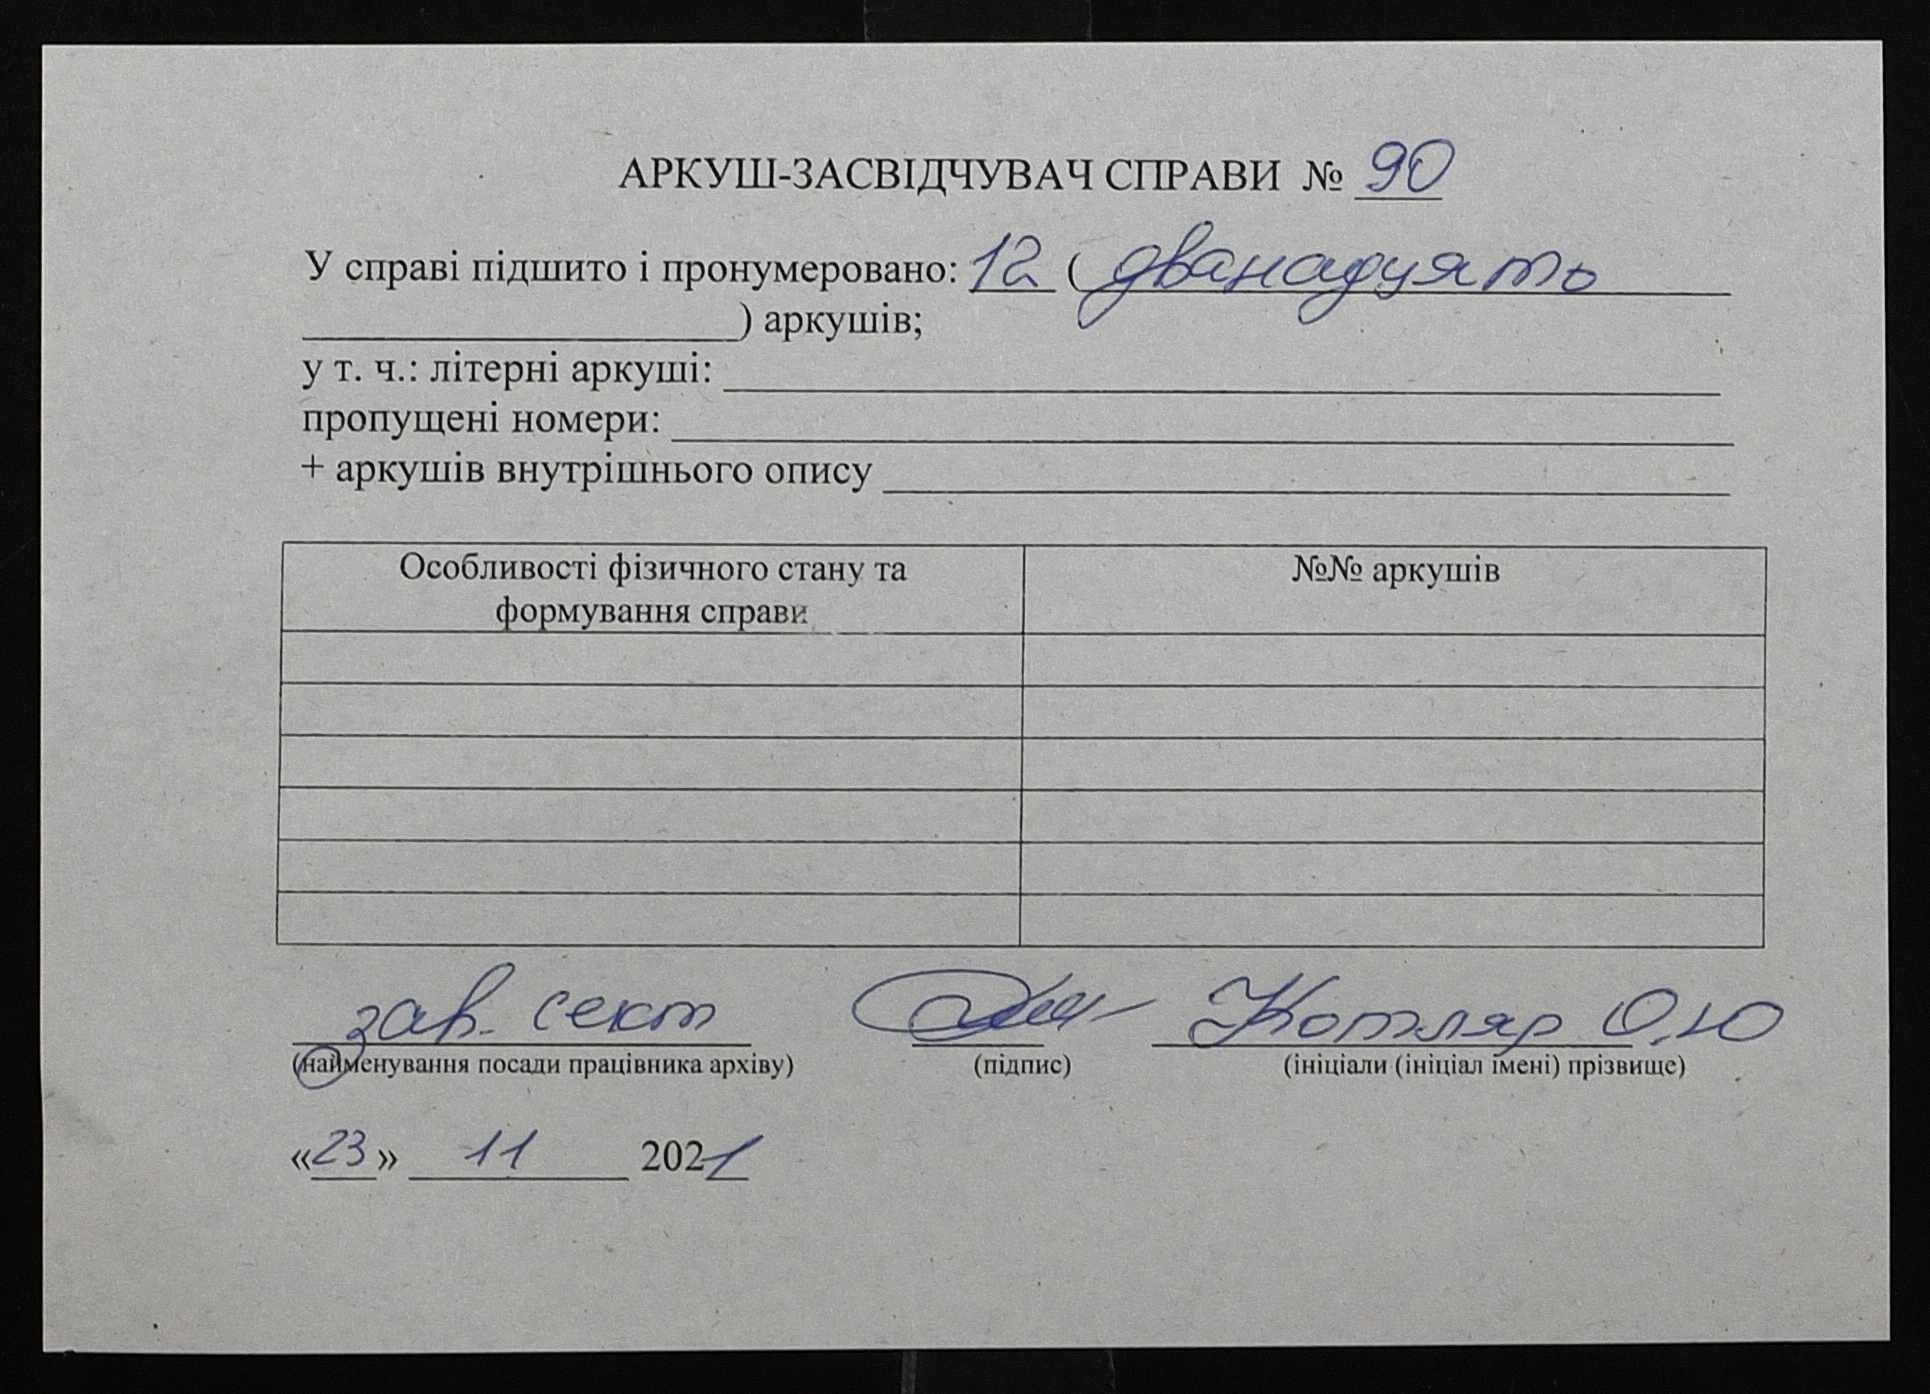 АРКУШ-ЗАСВІДЧУВАЧ СПРАВИ № 90
У справі підшито і пронумеровано: 12 (дванадцять
) аркушів;
у т. ч.: літерні аркуші:
пропущені номери:
+ аркушів внутрішнього опису
Особливості фізичного стану та №№ аркушів
формування справи
зав. сект Котляр О.Ю
(найменування посади працівника архіву) (підпис) (ініціали (ініціал імені) прізвище)
«23» 11 2021